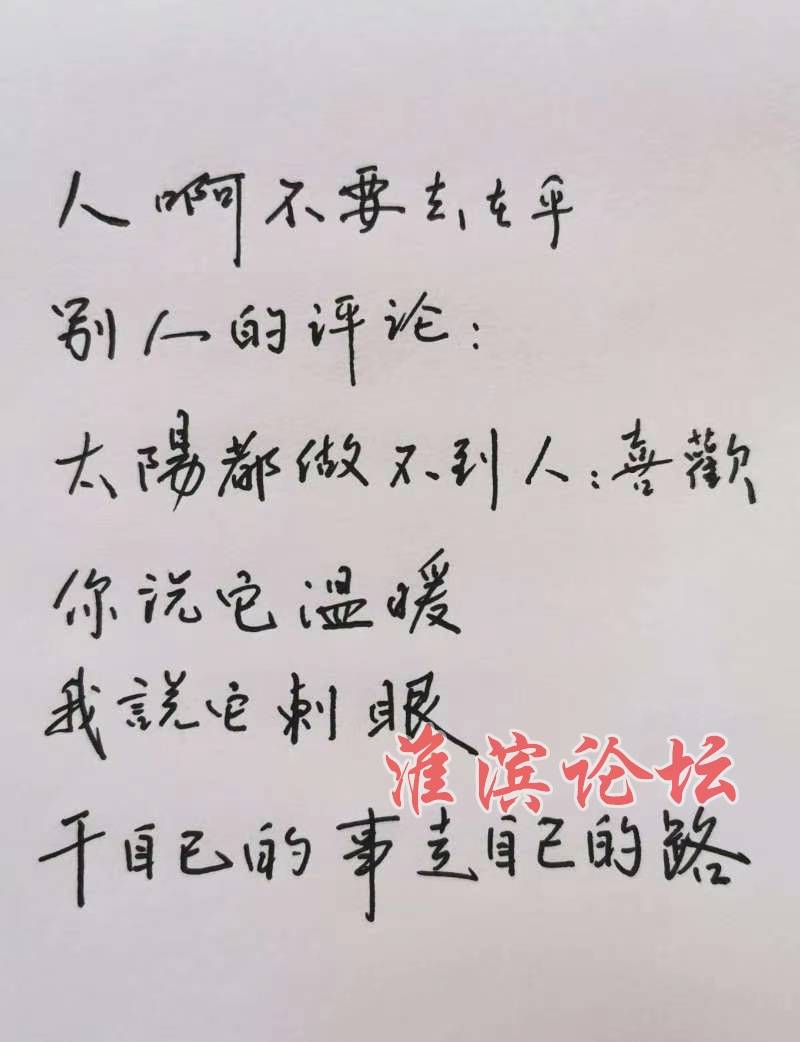 人啊不要去在乎
别人的评论：
太陽都做不到人：喜歡
你说它溫暖
我說它刺眼
淮滨论坛
干自己的事走自己的路